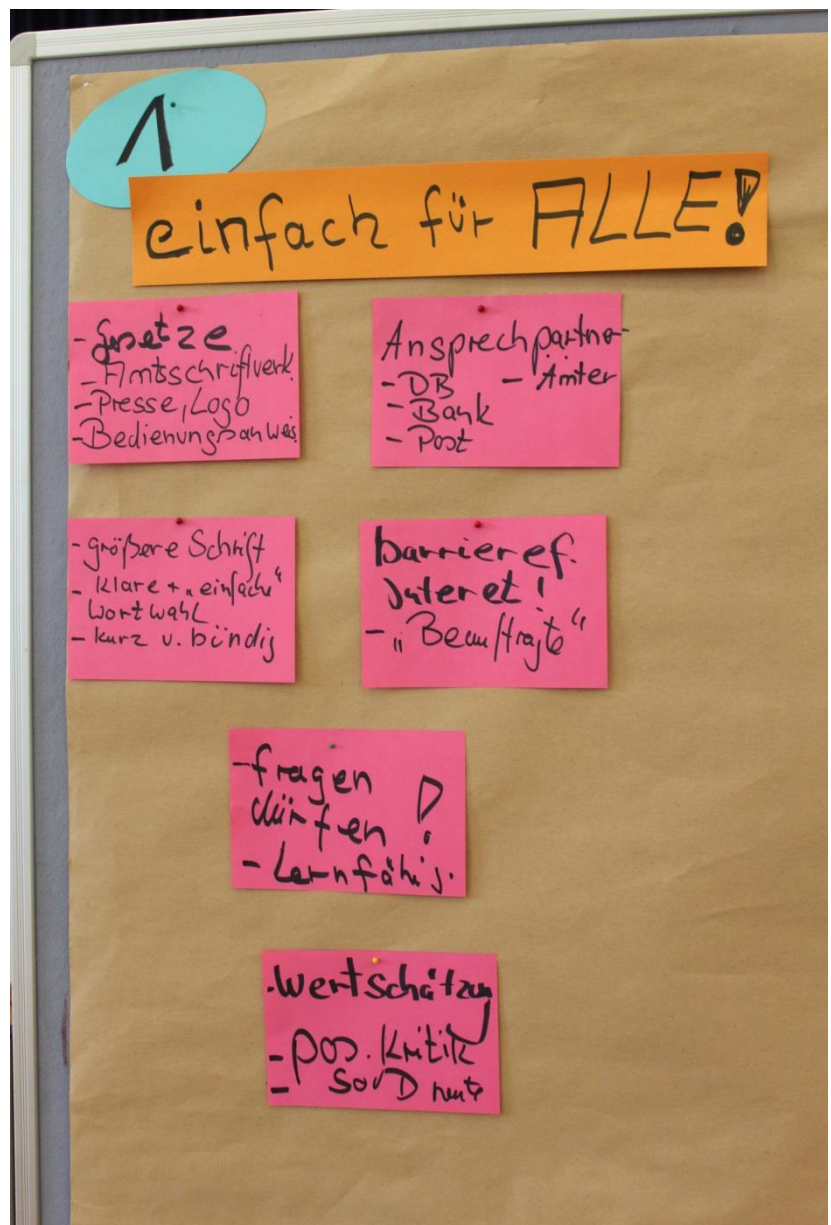 1
einfach für ALLE!
- Gesetze
- Amtsschriftverk.
- Presse, Logo
- Bedienungsanweis.
Ansprechpartner
- DB - Ämter
- Bank
- Post
- größere Schrift
- klare + „einfache“
Wortwahl
- kurz u. bündig
barrieref.
Interet!
- „Beauftragte“
- fragen
dürfen!
- Lernfähig.
- Wertschätzung
- pos. Kritik
- SoVD heute